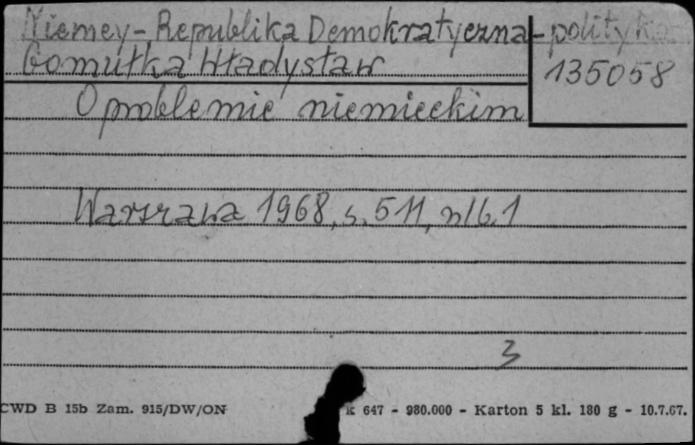 Niemcy - Republika Demokratyczna - polityka
Gomułka Władysław
135058
O problemie niemieckim
Warszawa 1968, s. 511, nlb. 1
3
CWD B 15b Zam. 915/DW/ON
k 647 - 980.000 - Karton 5 kl. 180 g - 10.7.67.